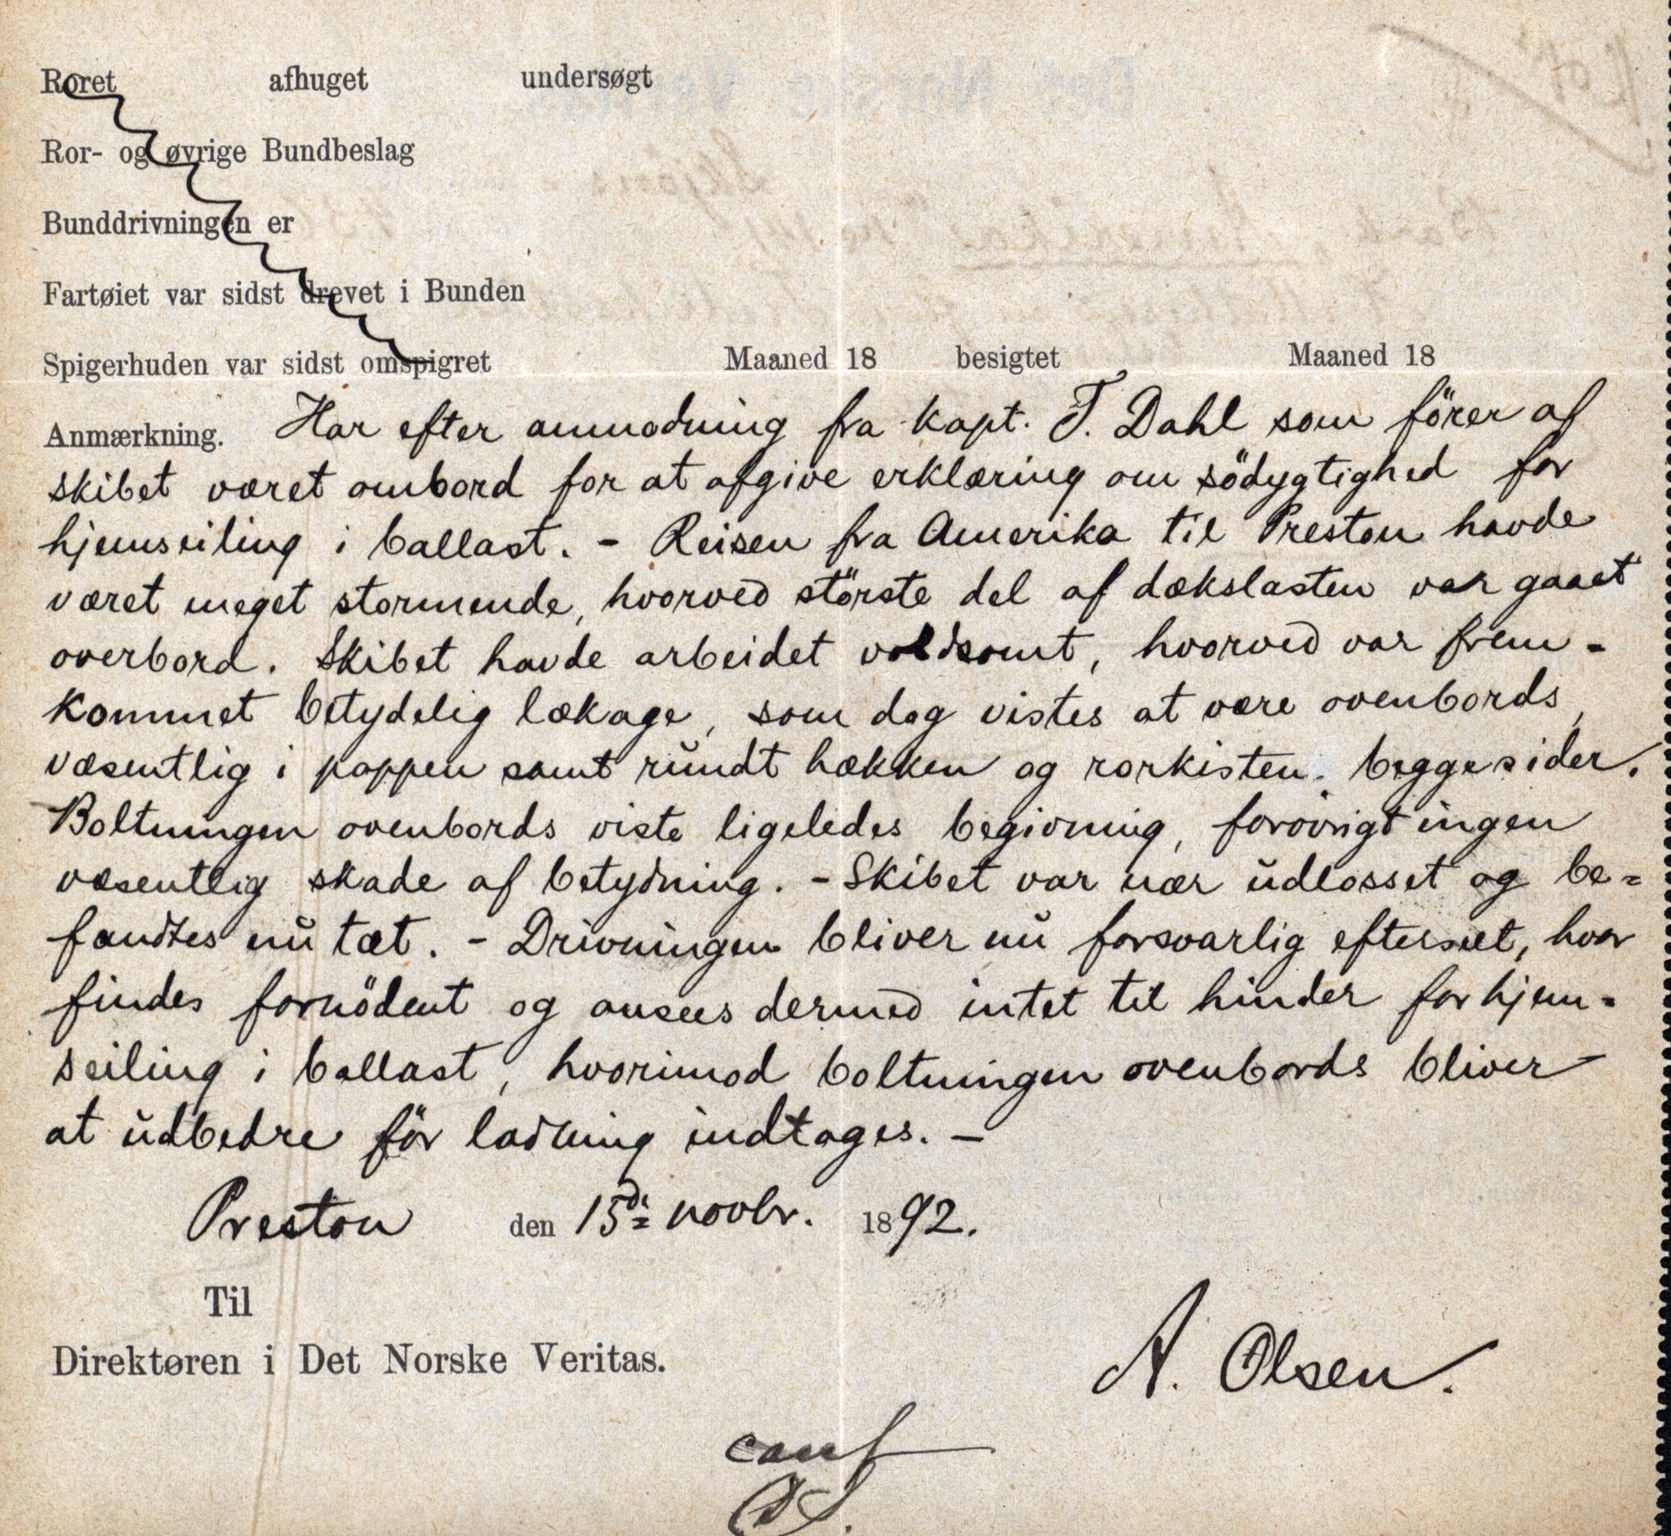 Roret afhuget undersøgt
Ror- og øvrige Bundbeslag
Bunddrivningen er
Fartøiet var sidst drevet i Bunden
Spigerhuden var sidst omspigret Maaned 18 besigtet Maaned 18
Anmærkning. Har efter anmodning fra kapt. T. Dahl som förer af
skibet været ombord for at afgive erklæring om södygtighed for
hjemseiling i ballast. - Reisen fra Amerika til Preston havde
været meget stormende, hvorved störste del af dækslasten var gaaet
overbord. Skibet havde arbeidet voldsomt, hvorved var frem-
kommet betydelig lækage, som dog vistes at være ovenbords,
væsentlig i poppen samt rundt hækken og rorkisten. begge sider.
Boltningen ovenbords viste ligeledes begivning, forövrigt ingen
væsentlig skade af betydning. - Skibet var nær udlosset og be=
fandtes nu tæt. - Drivningen bliver nu forsvarlig efterseet, hvor
findes fornödent og ansees dermed intet til hinder for hjem-
seiling i ballast, hvorimod boltningen ovenbords bliver
at udbedre för ladning indtages. -
Preston den 15de novbr. 1892.
Til
Direktøren i Det Norske Veritas.
A. Olsen.
conf